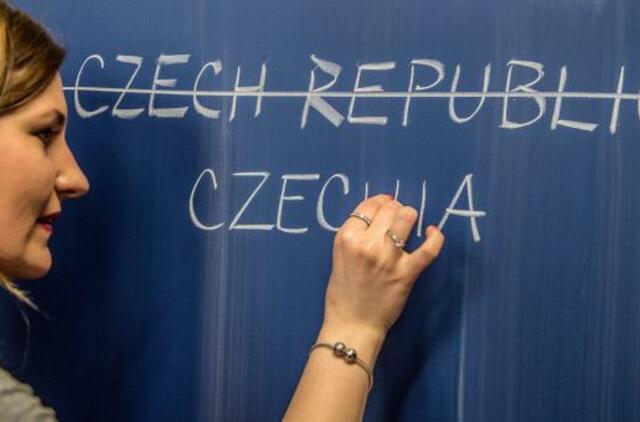 CZECH REPUBLI
CZECHIA